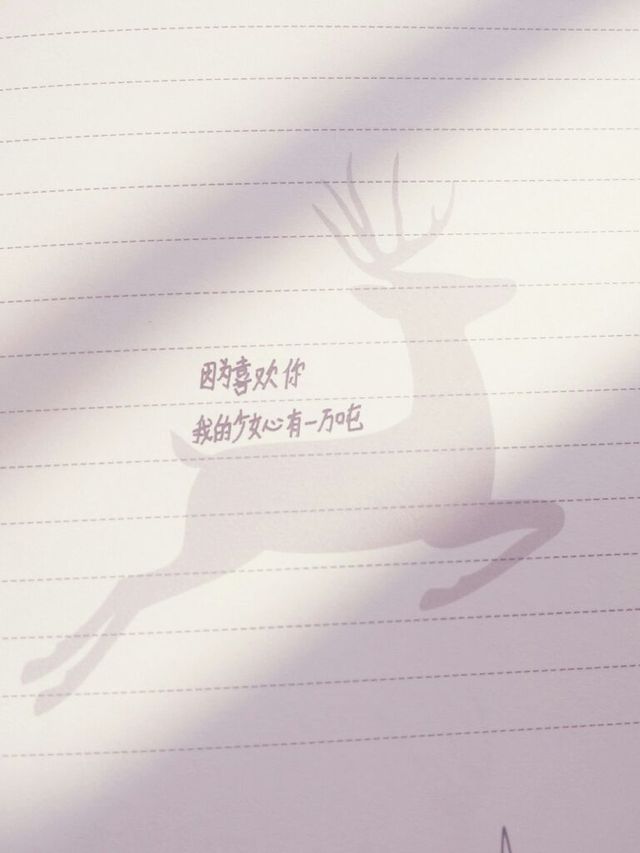 因为喜欢你
我的少女心有一万吨